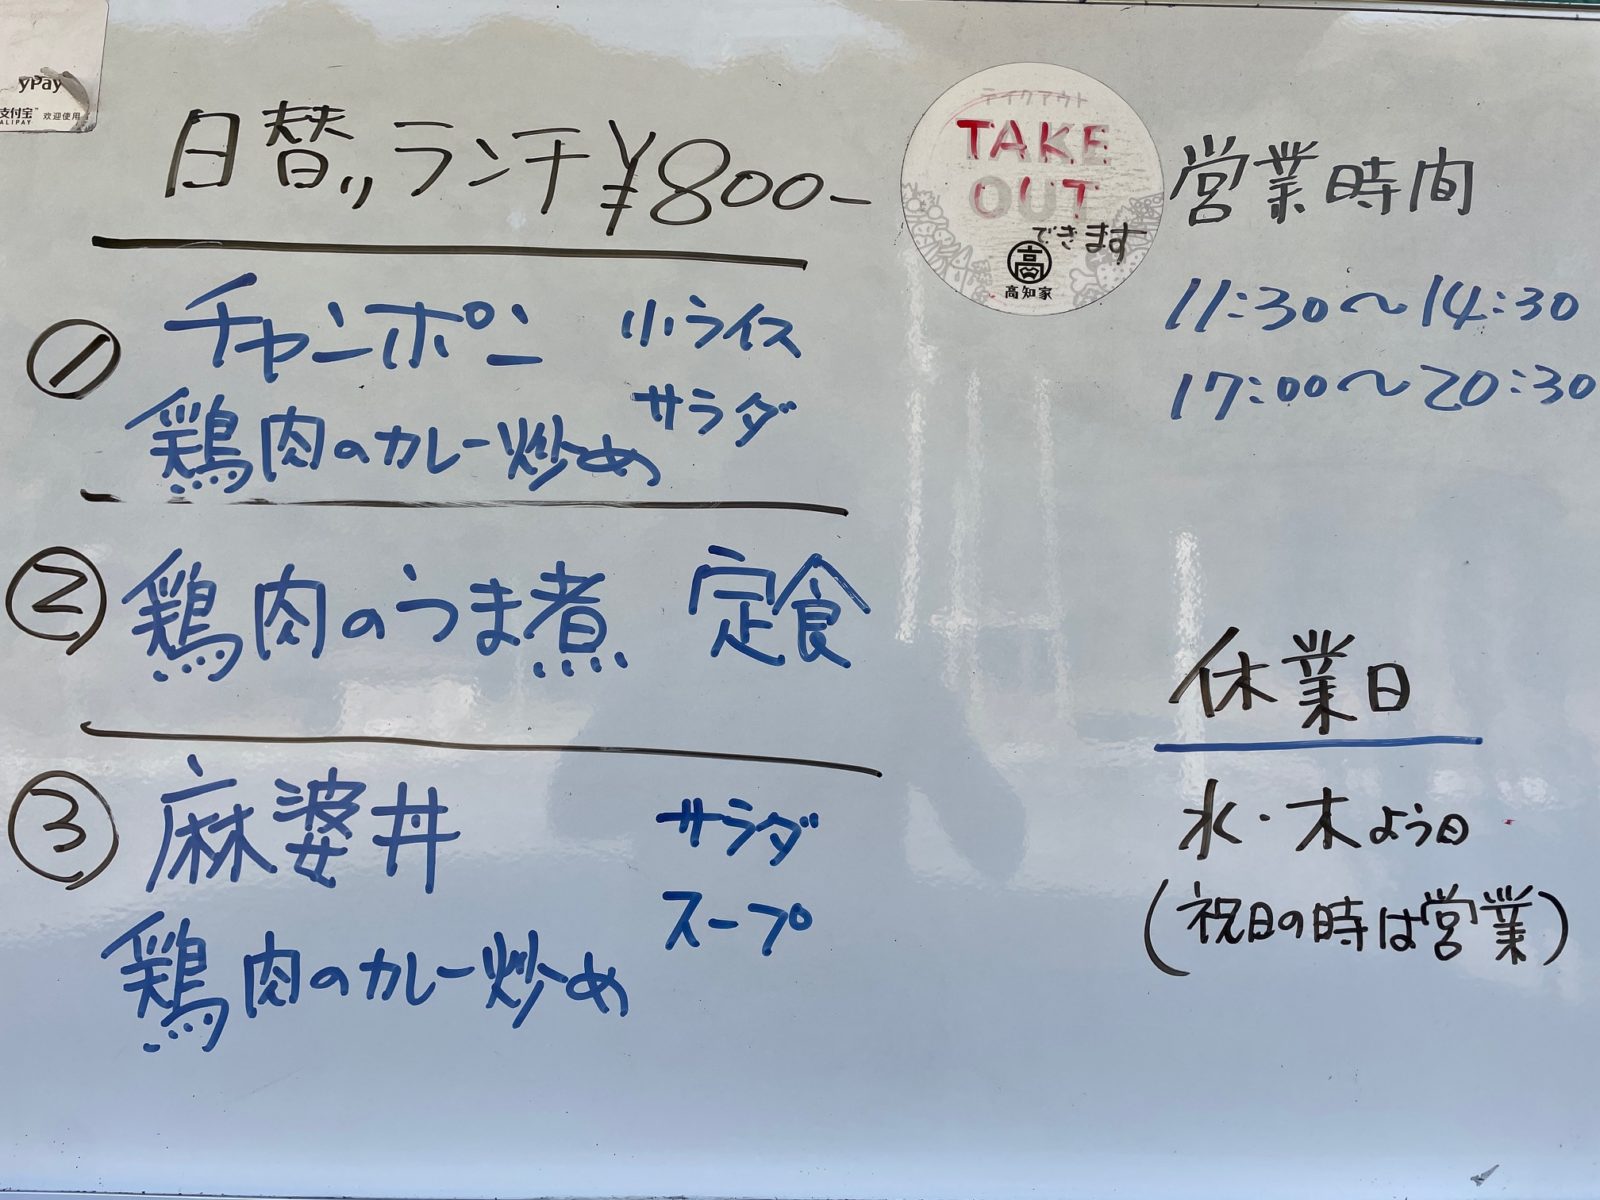 yPay
支付宝™ 欢迎使用
ALIPAY
日替りランチ¥800-
① チャンポン 小ライス
鶏肉のカレー炒め サラダ
② 鶏肉のうま煮 定食
③ 麻婆丼 サラダ
スープ
鶏肉のカレー炒め
テイクアウト
TAKE
OUT
できます
高
高知家
営業時間
11:30～14:30
17:00～20:30
休業日
水・木よう日
(祝日の時は営業)